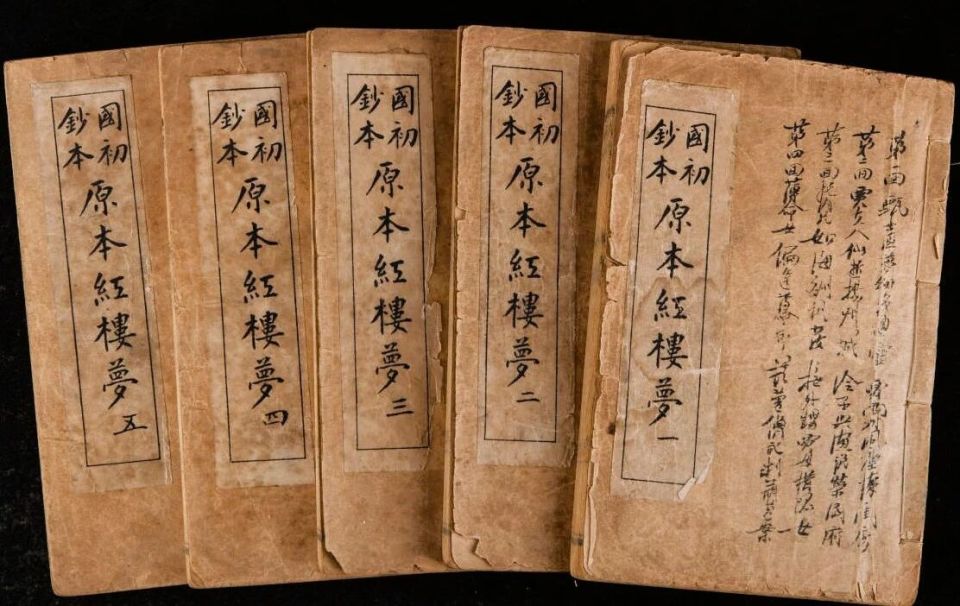 第一回 甄士隱夢幻識通靈
第二回 賈夫人仙逝揚州城 冷子興演說榮國府
第三回 如海酬訓教 接外孫賈母 女
第四回 薄命女偏逢薄命郎 葫蘆僧亂判葫蘆案
國初
鈔本
原本紅樓夢一
國初
鈔本
原本紅樓夢二
國初
鈔本
原本紅樓夢三
國初
鈔本
原本紅樓夢四
國初
鈔本
原本紅樓夢五